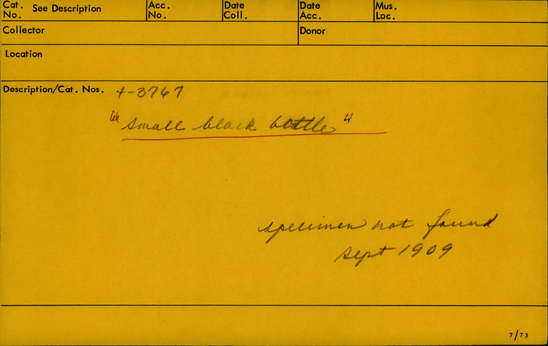 Cat. No. See Description Acc. No. Date Coll. Date Acc. Mus. Loc.
Collector Donor
Location
Description/Cat. Nos. 4-3767
"small black bottle"
specimen not found
Sept 1909
7/73